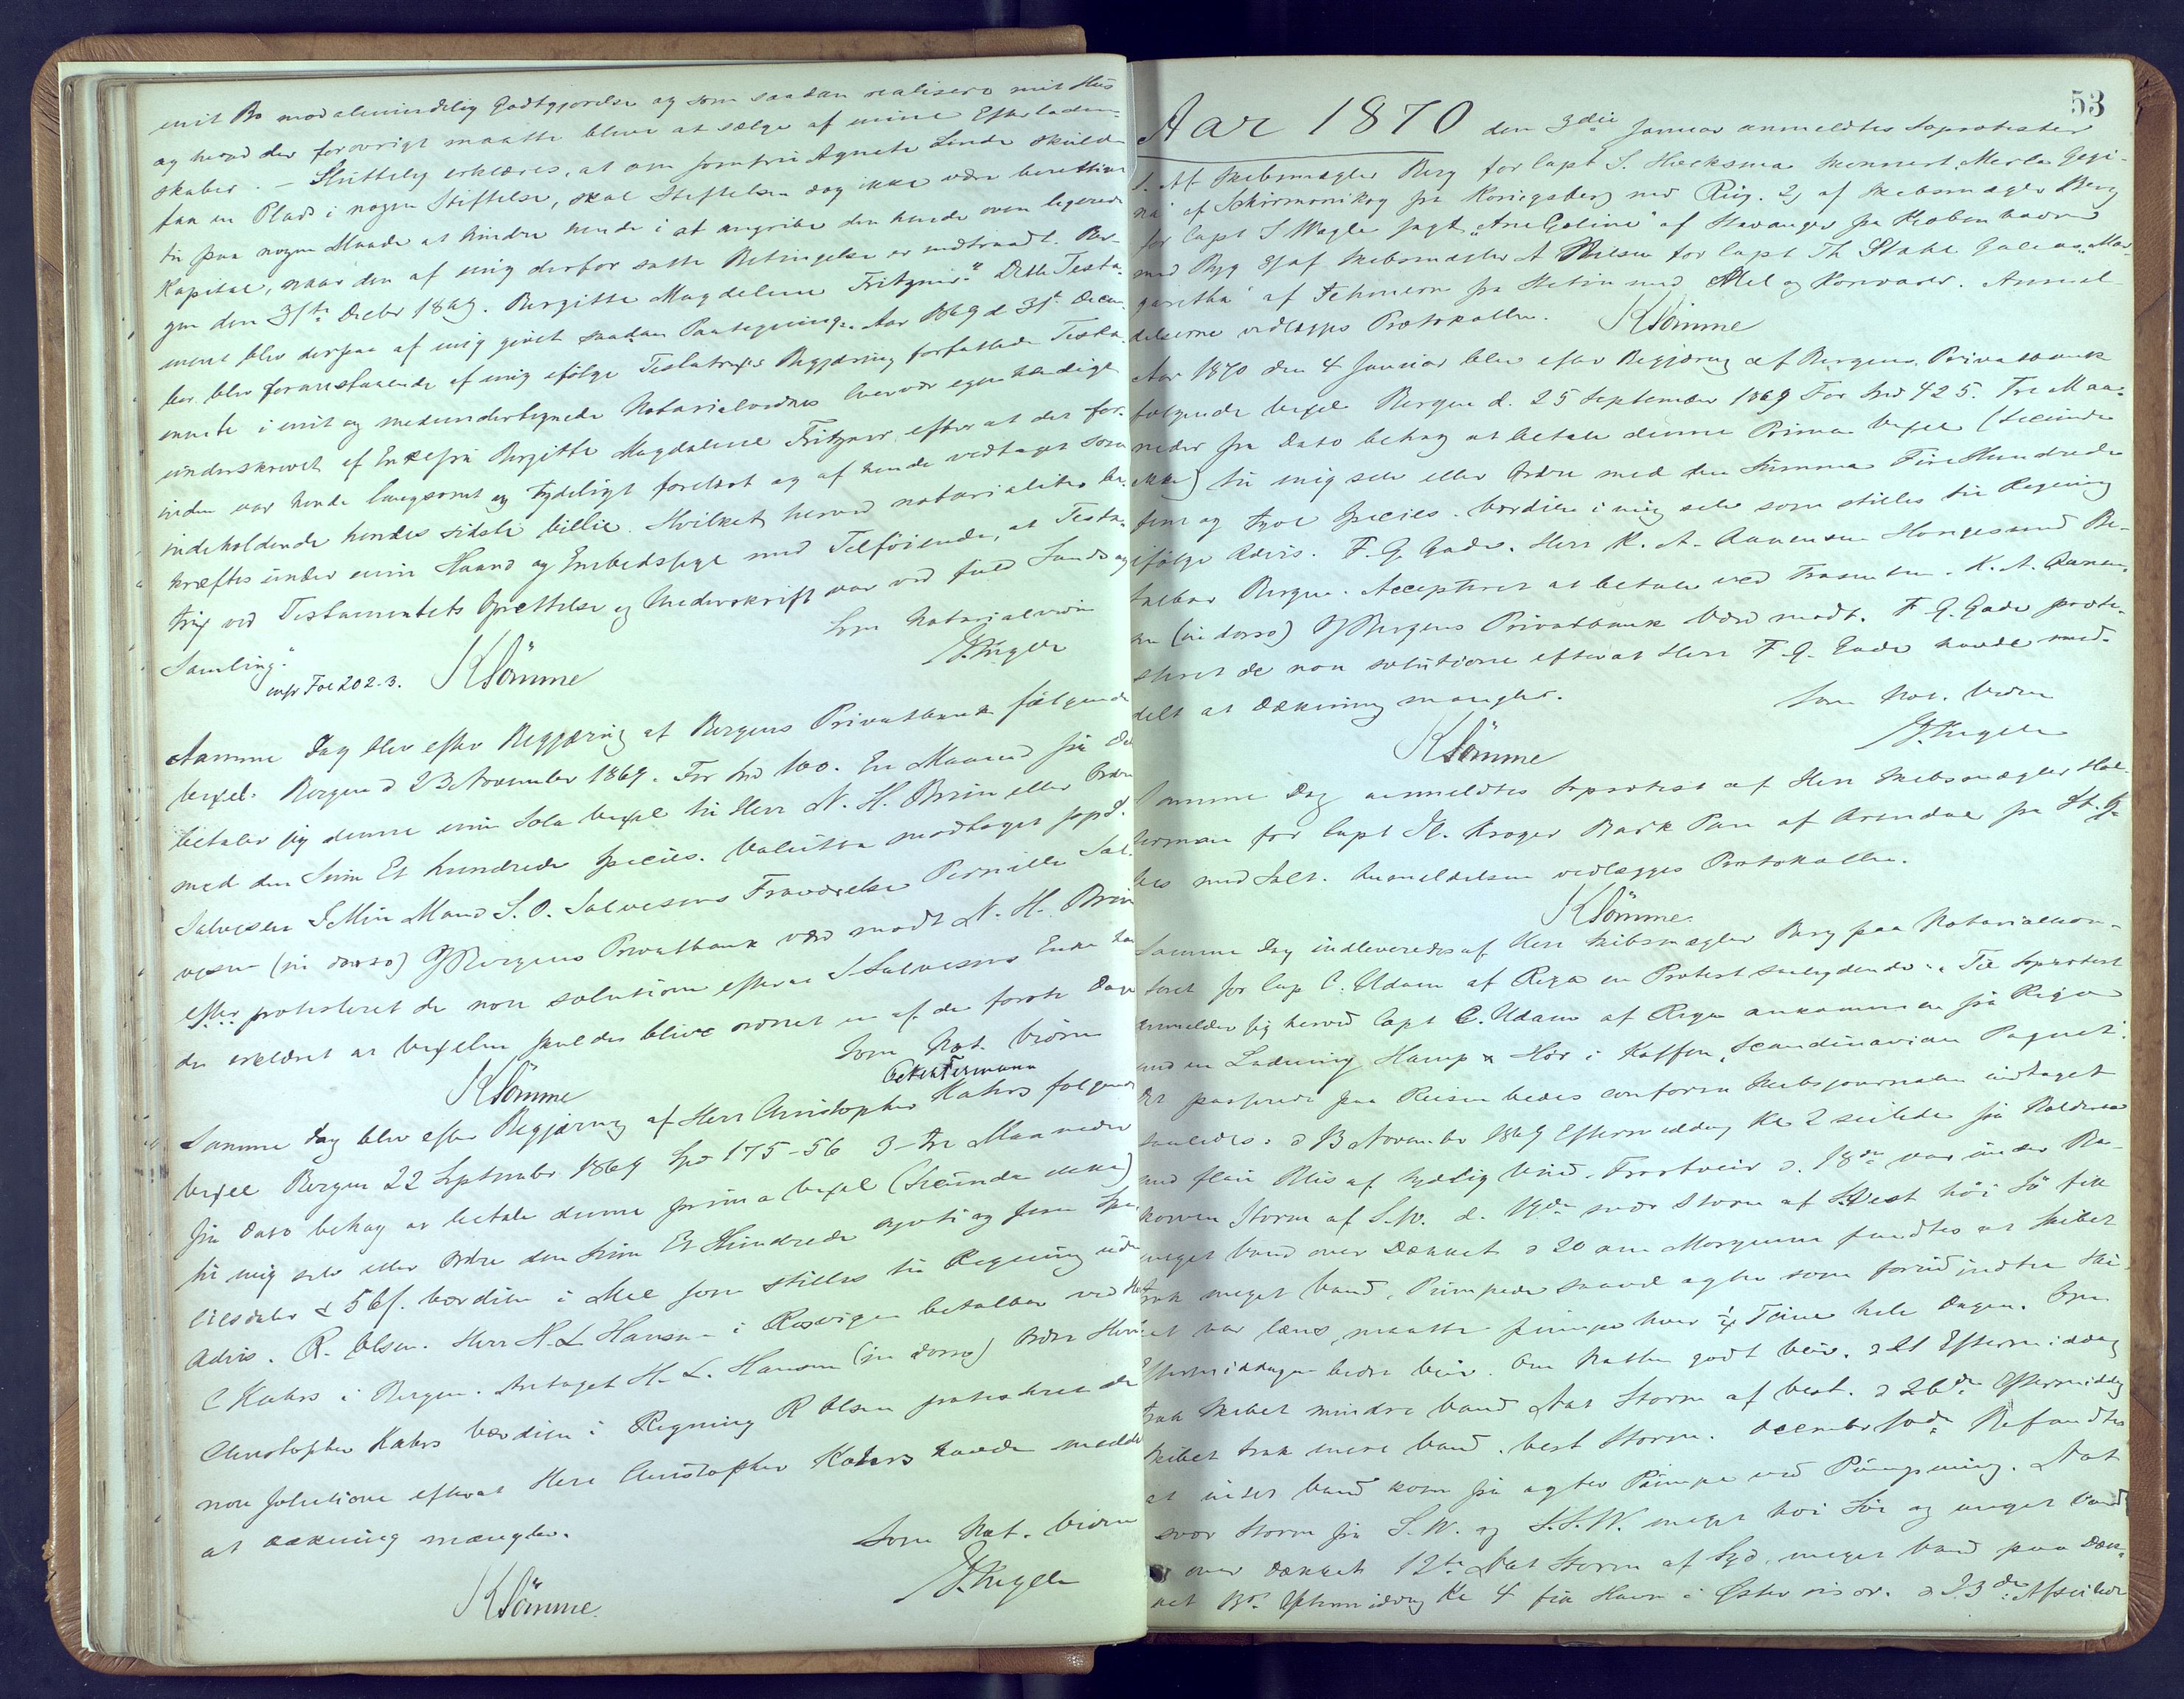 mit Bo mod almindelig Godtgjørelse og som saadan realisere mit Hus
og hvad der forøvrigt maatte blive at sælge af mine Efterladen-
skaber. – Sluttelig erklæres, at om Jomfru Agnete Linde skulde
faa en Plads i nogen Stiftelse, skal Stiftelsen dog ikke være berettiget
til paa nogen Maade at hindre hende i at angribe den hende oven legerede
Kapital, naar den af mig derfor satte Betingelse er indtraadt. Ber-
gen den 31te Decbr 1869. Birgitte Magdalene Fritzner." Dette Testa-
ment blev derpaa af mig givet saadan Paategning: Aar 1869 d 31t Decem-
ber blev foranstaaende af mig ifølge Testatrix's Begjæring forfattede Testa-
mente i mit og medundertegnede Notarialvidnes Overvær egenhændigen
underskrevet af Enkefru Birgitte Magdalene Fritzner efterat det for-
inden var hende langsomt og tydeligt forelæst og af hende vedtaget som
indeholdende hendes sidste Villie. Hvilket herved notarialiter be-
kræftes under min Haand og Embedssegl med Tilføiende, at Testa-
trix ved Testamentets Oprettelse og Underskrift var ved fuld Sands og
Samling."
Som Notarialvidne
cnfr Fol 202-3. KLömme
Samme Dag blev efter Begjæring af Bergens Privatbank følgende
Vexel. Bergen d 23 November 1869. For Spd 100. En Maaned fra Dato
betaler jeg denne min Sola Vexel til Herr N. H. Bruun eller Ordre
med den Sum Et hundrede Species. Valutta modtaget
Salvesen I Min Mand S. O. Salvesens Fraværelse Pernille Sal-
vesen (in dorso) Bergens Privatbank værd modt N. H. Bruun
efter protesteret de non solutione efterat S Salvesens Enke hav-
de erklæret at Vexelen skulde blive ordnet en af de første Dage
Som Not. Vidne
KLömme
Samme Dag blev efter Begjæring af Herr Christopher Kahrs følgende
Vexel Bergen 22 September 1869 Spd 175-56 3-tre Maaneder
fra Dato behag at betale denne prima Vexel (Secunda ikke)
til mig selv eller Ordre den Sum Et Hundrede sytti og fem Spe-
ciesdaler & 56 f. Værdien i Mel som stilles til Regning uden
Advis. R. Olsen. Herr H. L. Hansen i betalbar ved Hr
C Kahrs i Bergen. Antaget H. L. Hansen (in dorso) Ordre Herr
Christopher Kahrs Værdien i Regning R Olsen protesteret de
non solutione efterat Herr Christopher Kahrs havde meddelt
at Dækning mangler.
Som Not. Vidne
KLömme.
53
Aar 1870 den 3die Januar anmeldtes Søprotester
1. Af Skibsmægler Berg for Capt S. Skonnert Maria Gesi-
na" af Schirmonikog fra Königsberg med Rug. 2, af Skibsmægler Berg
for Capt S Jagt „Ane Goline" af Stavanger fra Kjøbenhavn
med Byg 3, af Skibsmægler A Nielsen for Capt Th Stahl Galeas „Mar-
garetha" af Fehmern fra Stetin med Mel og Kornvarer. Anmel-
delserne vedlægges Protokollen. KLömme
Aar 1870 den 4 Januar blev efter Begjæring af Bergens Privatbank
følgende Vexel Bergen d. 25 September 1869 For Spd 425. Tre Maa-
neder fra Dato behag at betale denne Prima Vexel (Secunda
ikke) til mig selv eller Ordre med den Summa Fire Hundrede
fem og tyve Species. Værdien i mig selv som stilles til Regning
ifølge Advis. F. G. Gade. Herr K. A. Aanensen Haugesund Be-
talbar Bergen. Accepteret at betale ved Trassenten. K. A. Aanen-
sen (in dorso) Bergens Privatbank Værd modt. F. G. Gade prote-
steret de non solutione efterat Herr F. G. Gade havde med-
delt at Dækning mangler.
Som Not. Vidne
KLömme
Samme Dag anmeldtes Søprotest af Herr Skibsmægler Hal-
for Capt H. Krøger Bark Pan af Arendal fra St. Y-
bes med Salt. Anmeldelsen vedlægges Protokollen.
KLömme.
Samme Dag indleveredes af Herr Skibsmægler Berg paa Notarialkon-
toret for Cap C. Udam af Riga en Protest saalydende: „Til Søprotest
anmelder sig herved Capt C. Udam af Riga ankommen fra Riga
med en Ladning Hamp & Hør i Koffen „Scandinavian Paquet".
Det passerede paa Reisen bedes conform Skibsjournalen indtaget
saaledes: d 13 November 1869 Eftermiddag Kl 2 seilede fra Bolderaa
med flau Bris af sydlig Vind. Frostveir d. 18de var under Bo-
Storm af S.W. d. 19de svær Storm af S.Vest høi Sø fik
meget Vand over Dækket d 20 om Morgenen fandtes at Skibet
trak meget Vand, Pumpede saavel agter som forud indtil Ski-
bet var læns, maatte pumpe hver ½ Time hele Dagen. Om
Eftermiddagen bedre Veir. Om Natten godt Veir. d 21 Eftermiddag
trak Skibet mindre Vand Nat Storm af Vest. d 26de Eftermiddag
Skibet trak mere Vand. Vest Storm. December 10de Befandtes
at intet Vand kom fra agter Pumpe ved Pumpning. Nat
svær Storm fra S.W. og S.S.W. meget høi Sø og meget Vand
over Dækket 12te Nat Storm af Syd, meget Vand paa Dæk-
ket 13de Eftermiddag Kl 4 fik Havn i Østerrisør. d 23de Afseilede